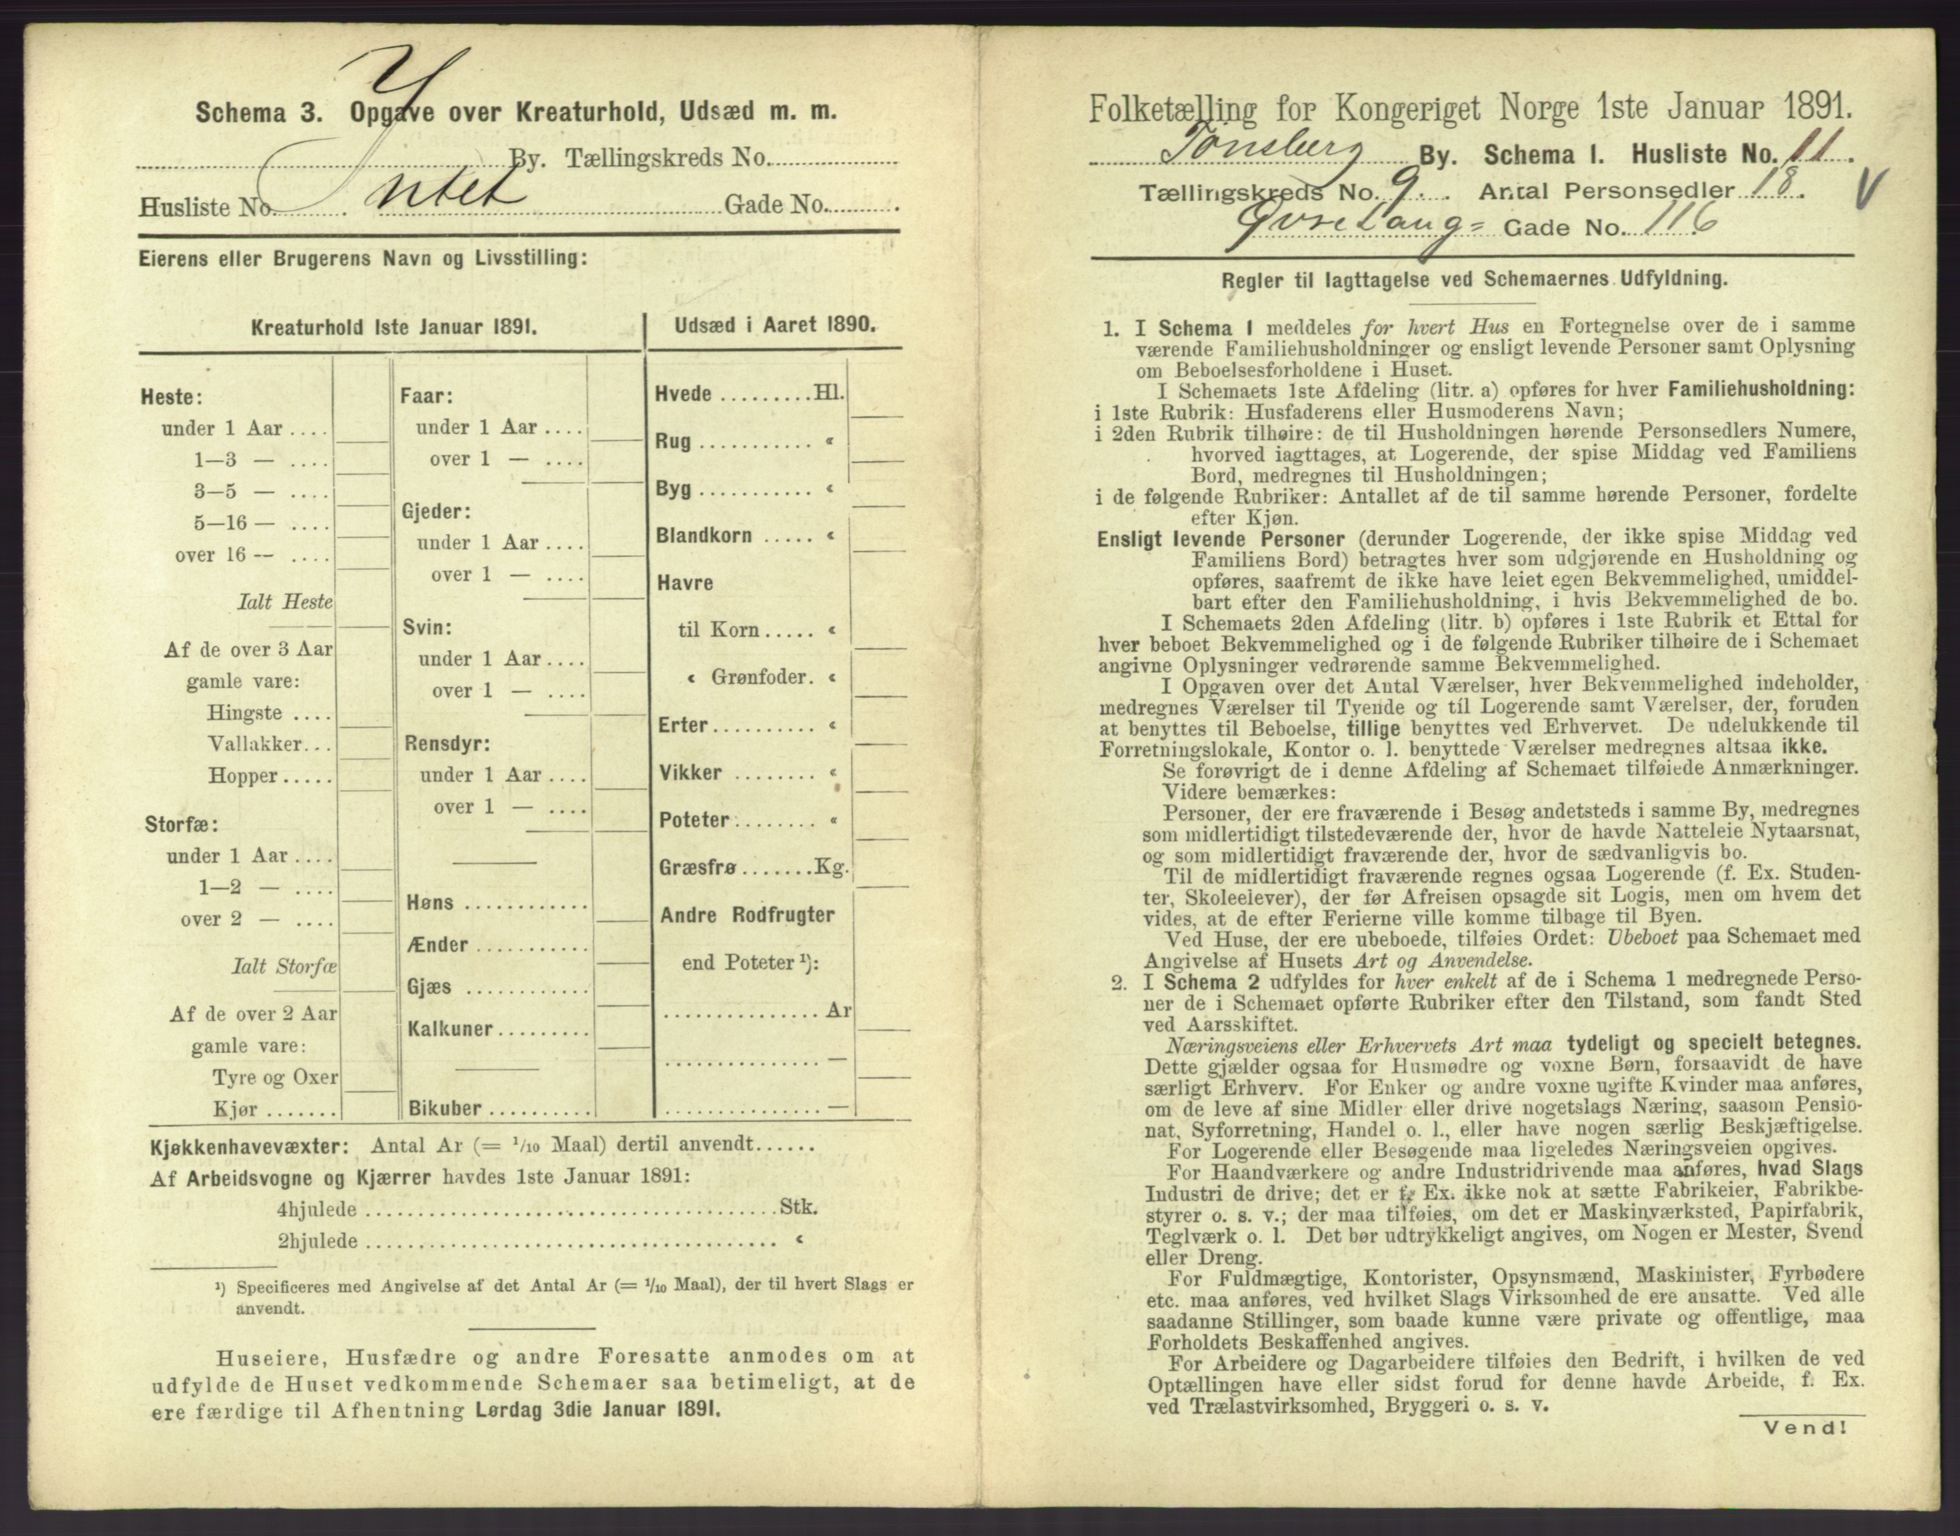 Schema 3. Opgave over Kreaturhold, Udsæd m. m.
By. Tællingskreds No.
Husliste No. Intet Gade No.
Eierens eller Brugerens Navn og Livsstilling:
Kreaturhold 1ste Januar 1891.
Heste:
under 1 Aar ....
1—3 — ....
3—5 — ....
5—16 — ....
over 16 — ....
Ialt Heste
Af de over 3 Aar
gamle vare:
Hingste ....
Vallakker...
Hopper.....
Storfæ:
under 1 Aar ....
1—2 — ....
over 2 — ....
Ialt Storfæ
Af de over 2 Aar
gamle vare:
Tyre og Oxer
Kjør .......
Faar:
under 1 Aar ....
over 1 — ....
Gjeder:
under 1 Aar ....
over 1 — ....
Svin:
under 1 Aar ....
over 1 — ....
Rensdyr:
under 1 Aar ....
over 1 — ....
Høns ............
Ænder ...........
Gjæs ............
Kalkuner.........
Bikuber ..........
Udsæd i Aaret 1890.
Hvede .........Hl.
Rug ........... «
Byg ........... «
Blandkorn ..... «
Havre
til Korn ..... «
« Grønfoder. «
Erter.......... «
Vikker ........ «
Poteter........ «
Græsfrø .......Kg.
Andre Rodfrugter
end Poteter ¹):
............... Ar
............... —
............... —
Kjøkkenhavevæxter: Antal Ar (= 1/10 Maal) dertil anvendt......
Af Arbeidsvogne og Kjærrer havdes 1ste Januar 1891:
4hjulede .......................................Stk.
2hjulede ....................................... «
¹) Specificeres med Angivelse af det Antal Ar (= 1/10 Maal), der til hvert Slags er
anvendt.
Huseiere, Husfædre og andre Foresatte anmodes om at
udfylde de Huset vedkommende Schemaer saa betimeligt, at de
ere færdige til Afhentning Lørdag 3die Januar 1891.
Folketælling for Kongeriget Norge 1ste Januar 1891.
Tønsberg By. Schema 1. Husliste No. 11.
Tællingskreds No. 9. Antal Personsedler 18. V
Øvre Lang= Gade No. 116
Regler til Iagttagelse ved Schemaernes Udfyldning.
1. I Schema 1 meddeles for hvert Hus en Fortegnelse over de i samme
værende Familiehusholdninger og ensligt levende Personer samt Oplysning
om Beboelsesforholdene i Huset.
I Schemaets 1ste Afdeling (litr. a) opføres for hver Familiehusholdning:
i 1ste Rubrik: Husfaderens eller Husmoderens Navn;
i 2den Rubrik tilhøire: de til Husholdningen hørende Personsedlers Numere,
hvorved iagttages, at Logerende, der spise Middag ved Familiens
Bord, medregnes til Husholdningen;
i de følgende Rubriker: Antallet af de til samme hørende Personer, fordelte
efter Kjøn.
Ensligt levende Personer (derunder Logerende, der ikke spise Middag ved
Familiens Bord) betragtes hver som udgjørende en Husholdning og
opføres, saafremt de ikke have leiet egen Bekvemmelighed, umiddel-
bart efter den Familiehusholdning, i hvis Bekvemmelighed de bo.
I Schemaets 2den Afdeling (litr. b) opføres i 1ste Rubrik et Ettal for
hver beboet Bekvemmelighed og i de følgende Rubriker tilhøire de i Schemaet
angivne Oplysninger vedrørende samme Bekvemmelighed.
I Opgaven over det Antal Værelser, hver Bekvemmelighed indeholder,
medregnes Værelser til Tyende og til Logerende samt Værelser, der, foruden
at benyttes til Beboelse, tillige benyttes ved Erhvervet. De udelukkende til
Forretningslokale, Kontor o. l. benyttede Værelser medregnes altsaa ikke.
Se forøvrigt de i denne Afdeling af Schemaet tilføiede Anmærkninger.
Videre bemærkes:
Personer, der ere fraværende i Besøg andetsteds i samme By, medregnes
som midlertidigt tilstedeværende der, hvor de havde Natteleie Nytaarsnat,
og som midlertidigt fraværende der, hvor de sædvanligvis bo.
Til de midlertidigt fraværende regnes ogsaa Logerende (f. Ex. Studen-
ter, Skoleelever), der før Afreisen opsagde sit Logis, men om hvem det
vides, at de efter Ferierne ville komme tilbage til Byen.
Ved Huse, der ere ubeboede, tilføies Ordet: Ubeboet paa Schemaet med
Angivelse af Husets Art og Anvendelse.
2. I Schema 2 udfyldes for hver enkelt af de i Schema 1 medregnede Perso-
ner de i Schemaet opførte Rubriker efter den Tilstand, som fandt Sted
ved Aarsskiftet.
Næringsveiens eller Erhvervets Art maa tydeligt og specielt betegnes.
Dette gjælder ogsaa for Husmødre og voxne Børn, forsaavidt de have
særligt Erhverv. For Enker og andre voxne ugifte Kvinder maa anføres,
om de leve af sine Midler eller drive nogetslags Næring, saasom Pensio-
nat, Syforretning, Handel o. l., eller have nogen særlig Beskjæftigelse.
For Logerende eller Besøgende maa ligeledes Næringsveien opgives.
For Haandværkere og andre Industridrivende maa anføres, hvad Slags
Industri de drive; det er f. Ex. ikke nok at sætte Fabrikeier, Fabrikbe-
styrer o. s. v.; der maa tilføies, om det er Maskinværksted, Papirfabrik,
Teglværk o. l. Det bør udtrykkeligt angives, om Nogen er Mester, Svend
eller Dreng.
For Fuldmægtige, Kontorister, Opsynsmænd, Maskinister, Fyrbødere
etc. maa anføres, ved hvilket Slags Virksomhed de ere ansatte. Ved alle
saadanne Stillinger, som baade kunne være private og offentlige, maa
Forholdets Beskaffenhed angives.
For Arbeidere og Dagarbeidere tilføies den Bedrift, i hvilken de ved
Optællingen have eller sidst forud for denne havde Arbeide, f. Ex.
ved Trælastvirksomhed, Bryggeri o. s. v.
Vend!